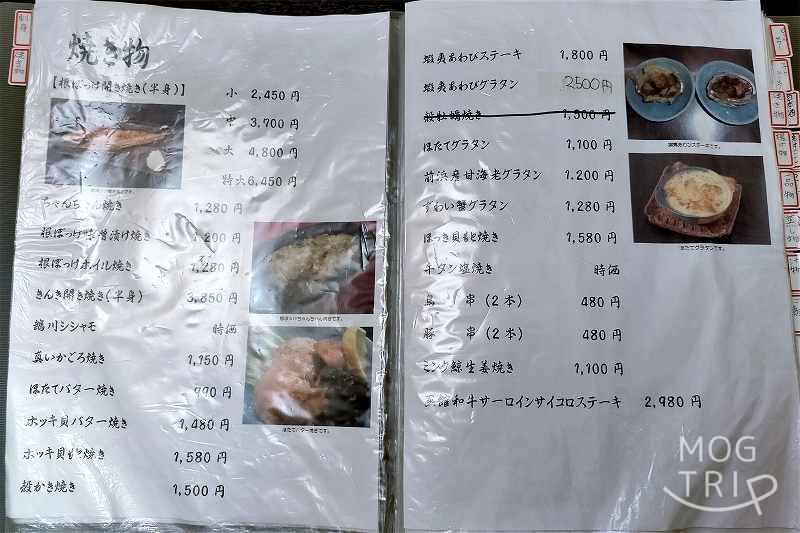 焼き物
【根ぼっけ開き焼き(半身)】
小 2,450 円
中 3,700 円
大 4,800 円
特大 6,450 円
ちゃんちゃん焼き 1,280 円
根ぼっけ味噌漬け焼き 1,200 円
根ぼっけホイル焼き 1,280 円
きんき開き焼き(半身) 3,850 円
鵡川シシャモ 時価
真いかごろ焼き 1,150 円
ほたてバター焼き 990 円
ほたてバター焼きです。
ホッキ貝バター焼き 1,480 円
ホッキ貝もと焼き 1,580 円
殻かき焼き 1,500 円
蝦夷あわびステーキ 1,800 円
蝦夷あわびグラタン 2500円
殻牡蠣焼き 1,500 円
ほたてグラタン 1,100 円
前浜産甘海老グラタン 1,200 円
ずわい蟹グラタン 1,280 円
ほっき貝もと焼き 1,580 円
牛タン塩焼き 時価
鳥 串(2本) 480 円
豚 串(2本) 480 円
ミンク鯨生姜焼き 1,100 円
函館和牛サーロインサイコロステーキ 2,980 円
蝦夷あわびステーキです。
ほたてグラタンです。
刺身
焼き物
MOG
TRIP